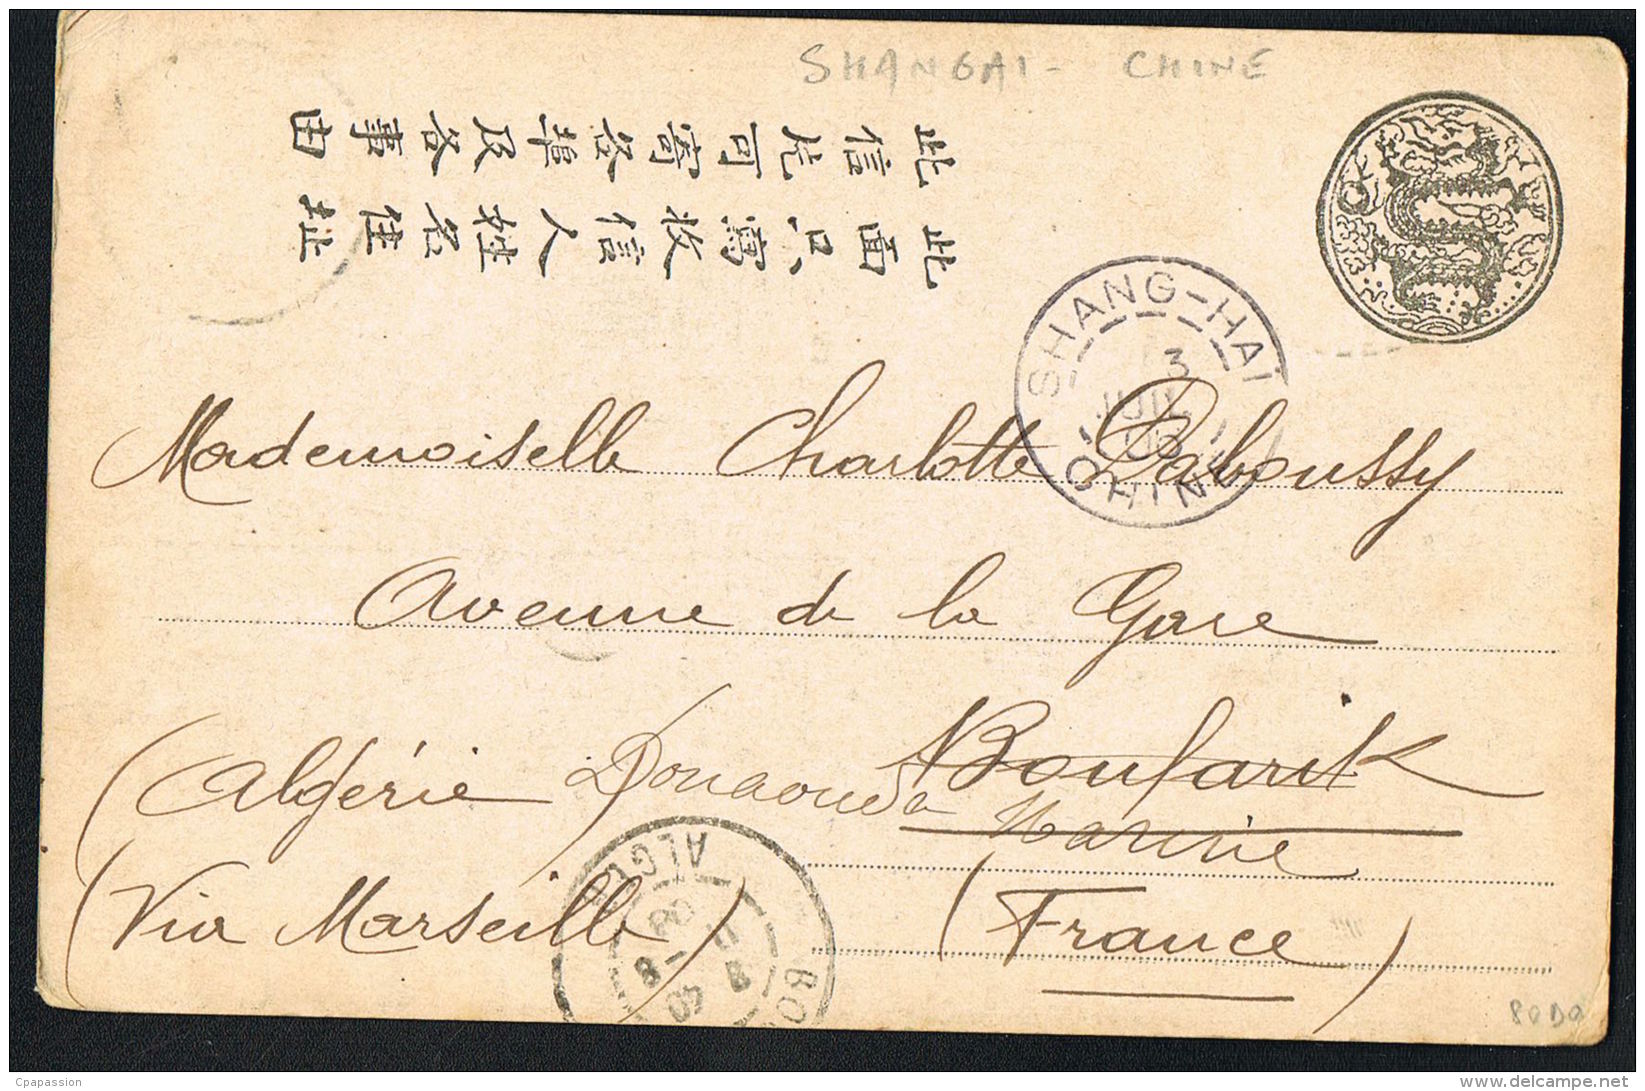 SHANGAI - CHINE
此信片可寄各埠及各事由
此面只寫收信人姓名住址
SHANG-HAI
3
JUIL
CHINE
Mademoiselle Charlotte Daboussy
Avenue de la Gare
Boufarik
(Algérie) Douaouda
Marine
(Via Marseille)
(France)
ALGER
Cpapassion
www.delcampe.net